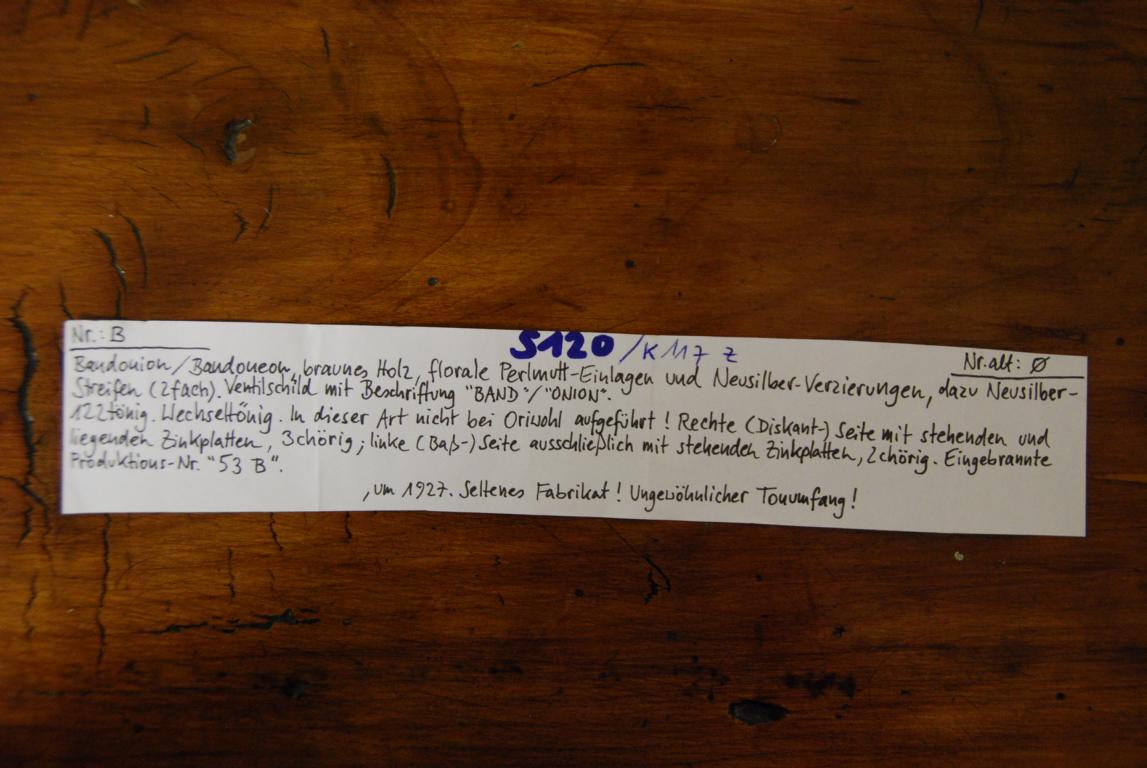 Nr.: B
5120 / K 117 Z
Nr. alt: Ø
Bandonion / Bandoneon, braunes Holz, florale Perlmutt-Einlagen und Neusilber-Verzierungen, dazu Neusilber-
Streifen (2fach). Ventilschild mit Beschriftung "BAND"/"ONION".
122tönig. Wechseltönig. In dieser Art nicht bei Oriwohl aufgeführt! Rechte (Diskant-) Seite mit stehenden und
liegenden Zinkplatten, 3chörig; linke (Baß-) Seite ausschließlich mit stehenden Zinkplatten, 2chörig. Eingebrannte
Produktions-Nr. "53 B".
, um 1927. Seltenes Fabrikat! Ungewöhnlicher Tonumfang!